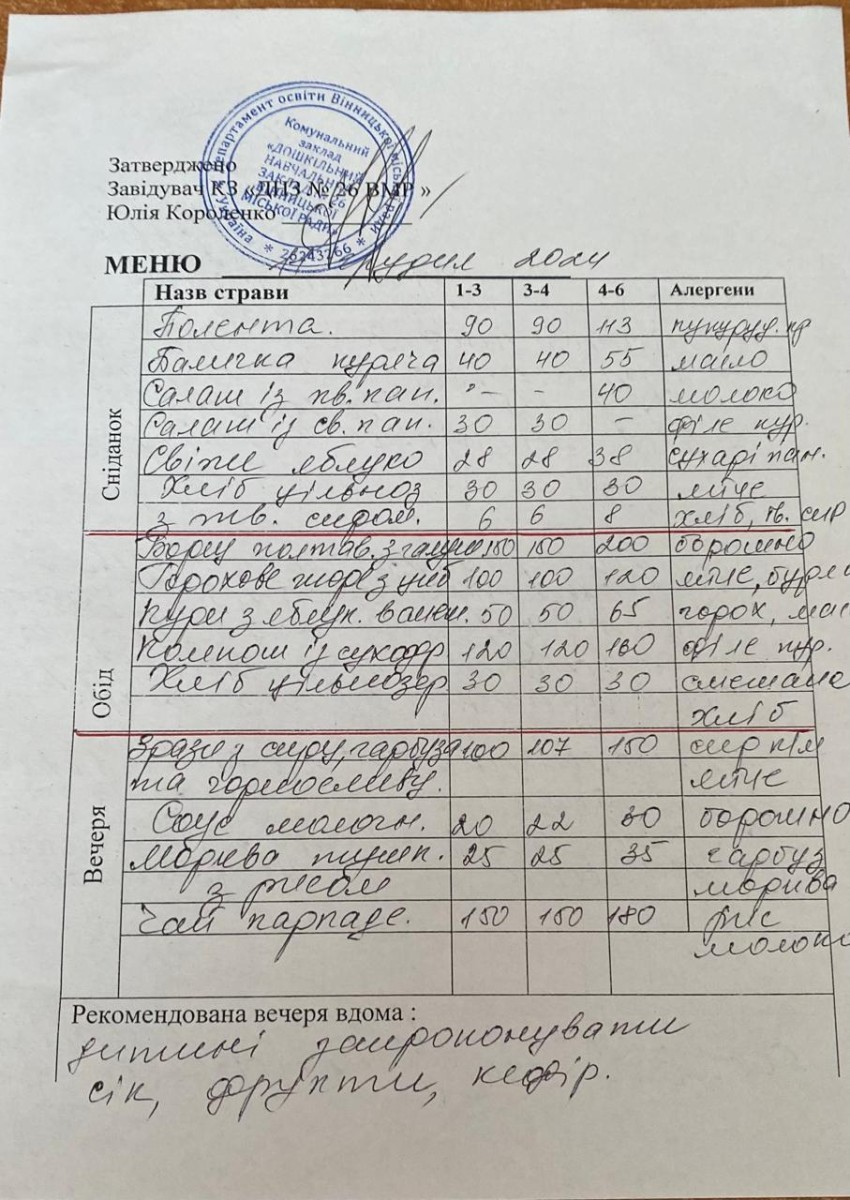 Департамент освіти Вінницької міської ради
Комунальний
заклад
«ДОШКІЛЬНИЙ
НАВЧАЛЬНИЙ
ЗАКЛАД № 26
ВІННИЦЬКОЇ
МІСЬКОЇ РАДИ»
* Україна * 26243266 *
Затверджено
Завідувач КЗ «ДНЗ № 26 ВМР »
Юлія Короленко
МЕНЮ грудня 2024
Назв страви 1-3 3-4 4-6 Алергени
Сніданок
Полента. 90 90 113 кукуруд. кр
Паличка куряча 40 40 55 масло
Салат із кв. кап. - - 40 молоко
Салат із св. кап. 30 30 - філе кур.
Свіже яблуко 28 28 38 сухарі пан.
Хліб цільноз 30 30 30 яйце
з тв. сиром. 6 6 8 хліб, тв. сир
Обід
Борщ полтав. з галуш 150 150 200 борошно
Горохове пюре з циб 100 100 120 яйце, буря
Кури з яблук. запеч. 50 50 65 горох, мас
Компот із сухофр 120 120 160 філе кур.
Хліб цільнозер 30 30 30 сметана
хліб
Вечеря
Зрази з сиру, гарбуза 100 107 150 сир к/м
та чорносливу. яйце
Соус молочн. 20 22 30 борошно
Морква тушк. 25 25 35 гарбуз
з рисом морква
Чай каркаде. 150 150 180 рис
молоко
Рекомендована вечеря вдома :
дитині запропонувати
сік, фрукти, кефір.